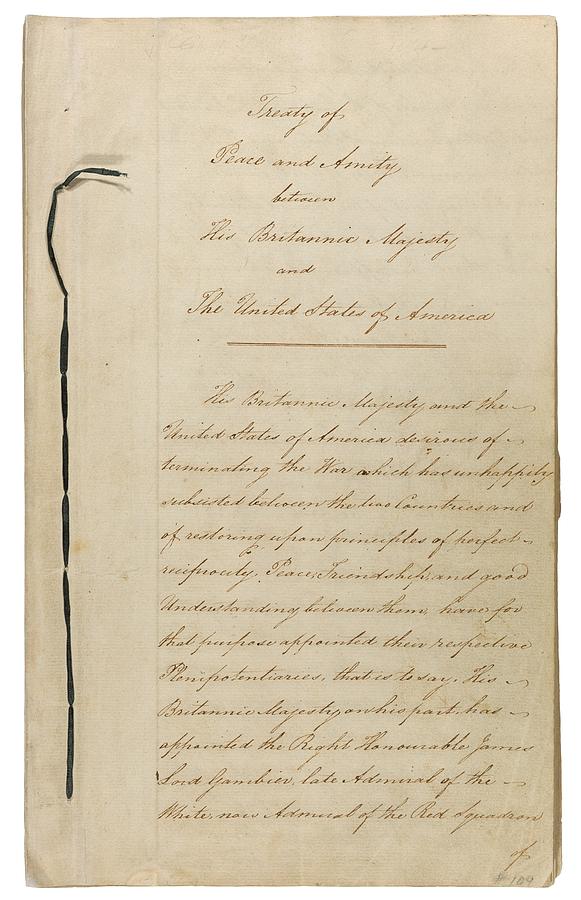 Treaty of
Peace and Amity
between
His Britannic Majesty
and
The United States of America
His Britannic Majesty and the
United States of America desirous of
terminating the War which has unhappily
subsisted between the two Countries and
of restoring upon principles of perfect
reciprocity, Peace, Friendship, and good
Understanding between them, have for
that purpose appointed their respective
Plenipotentiaries, that is to say, His
Britannic Majesty on his part, has
appointed the Right Honourable James
Lord Gambier, late Admiral of the
White, now Admiral of the Red Squadron
of
109